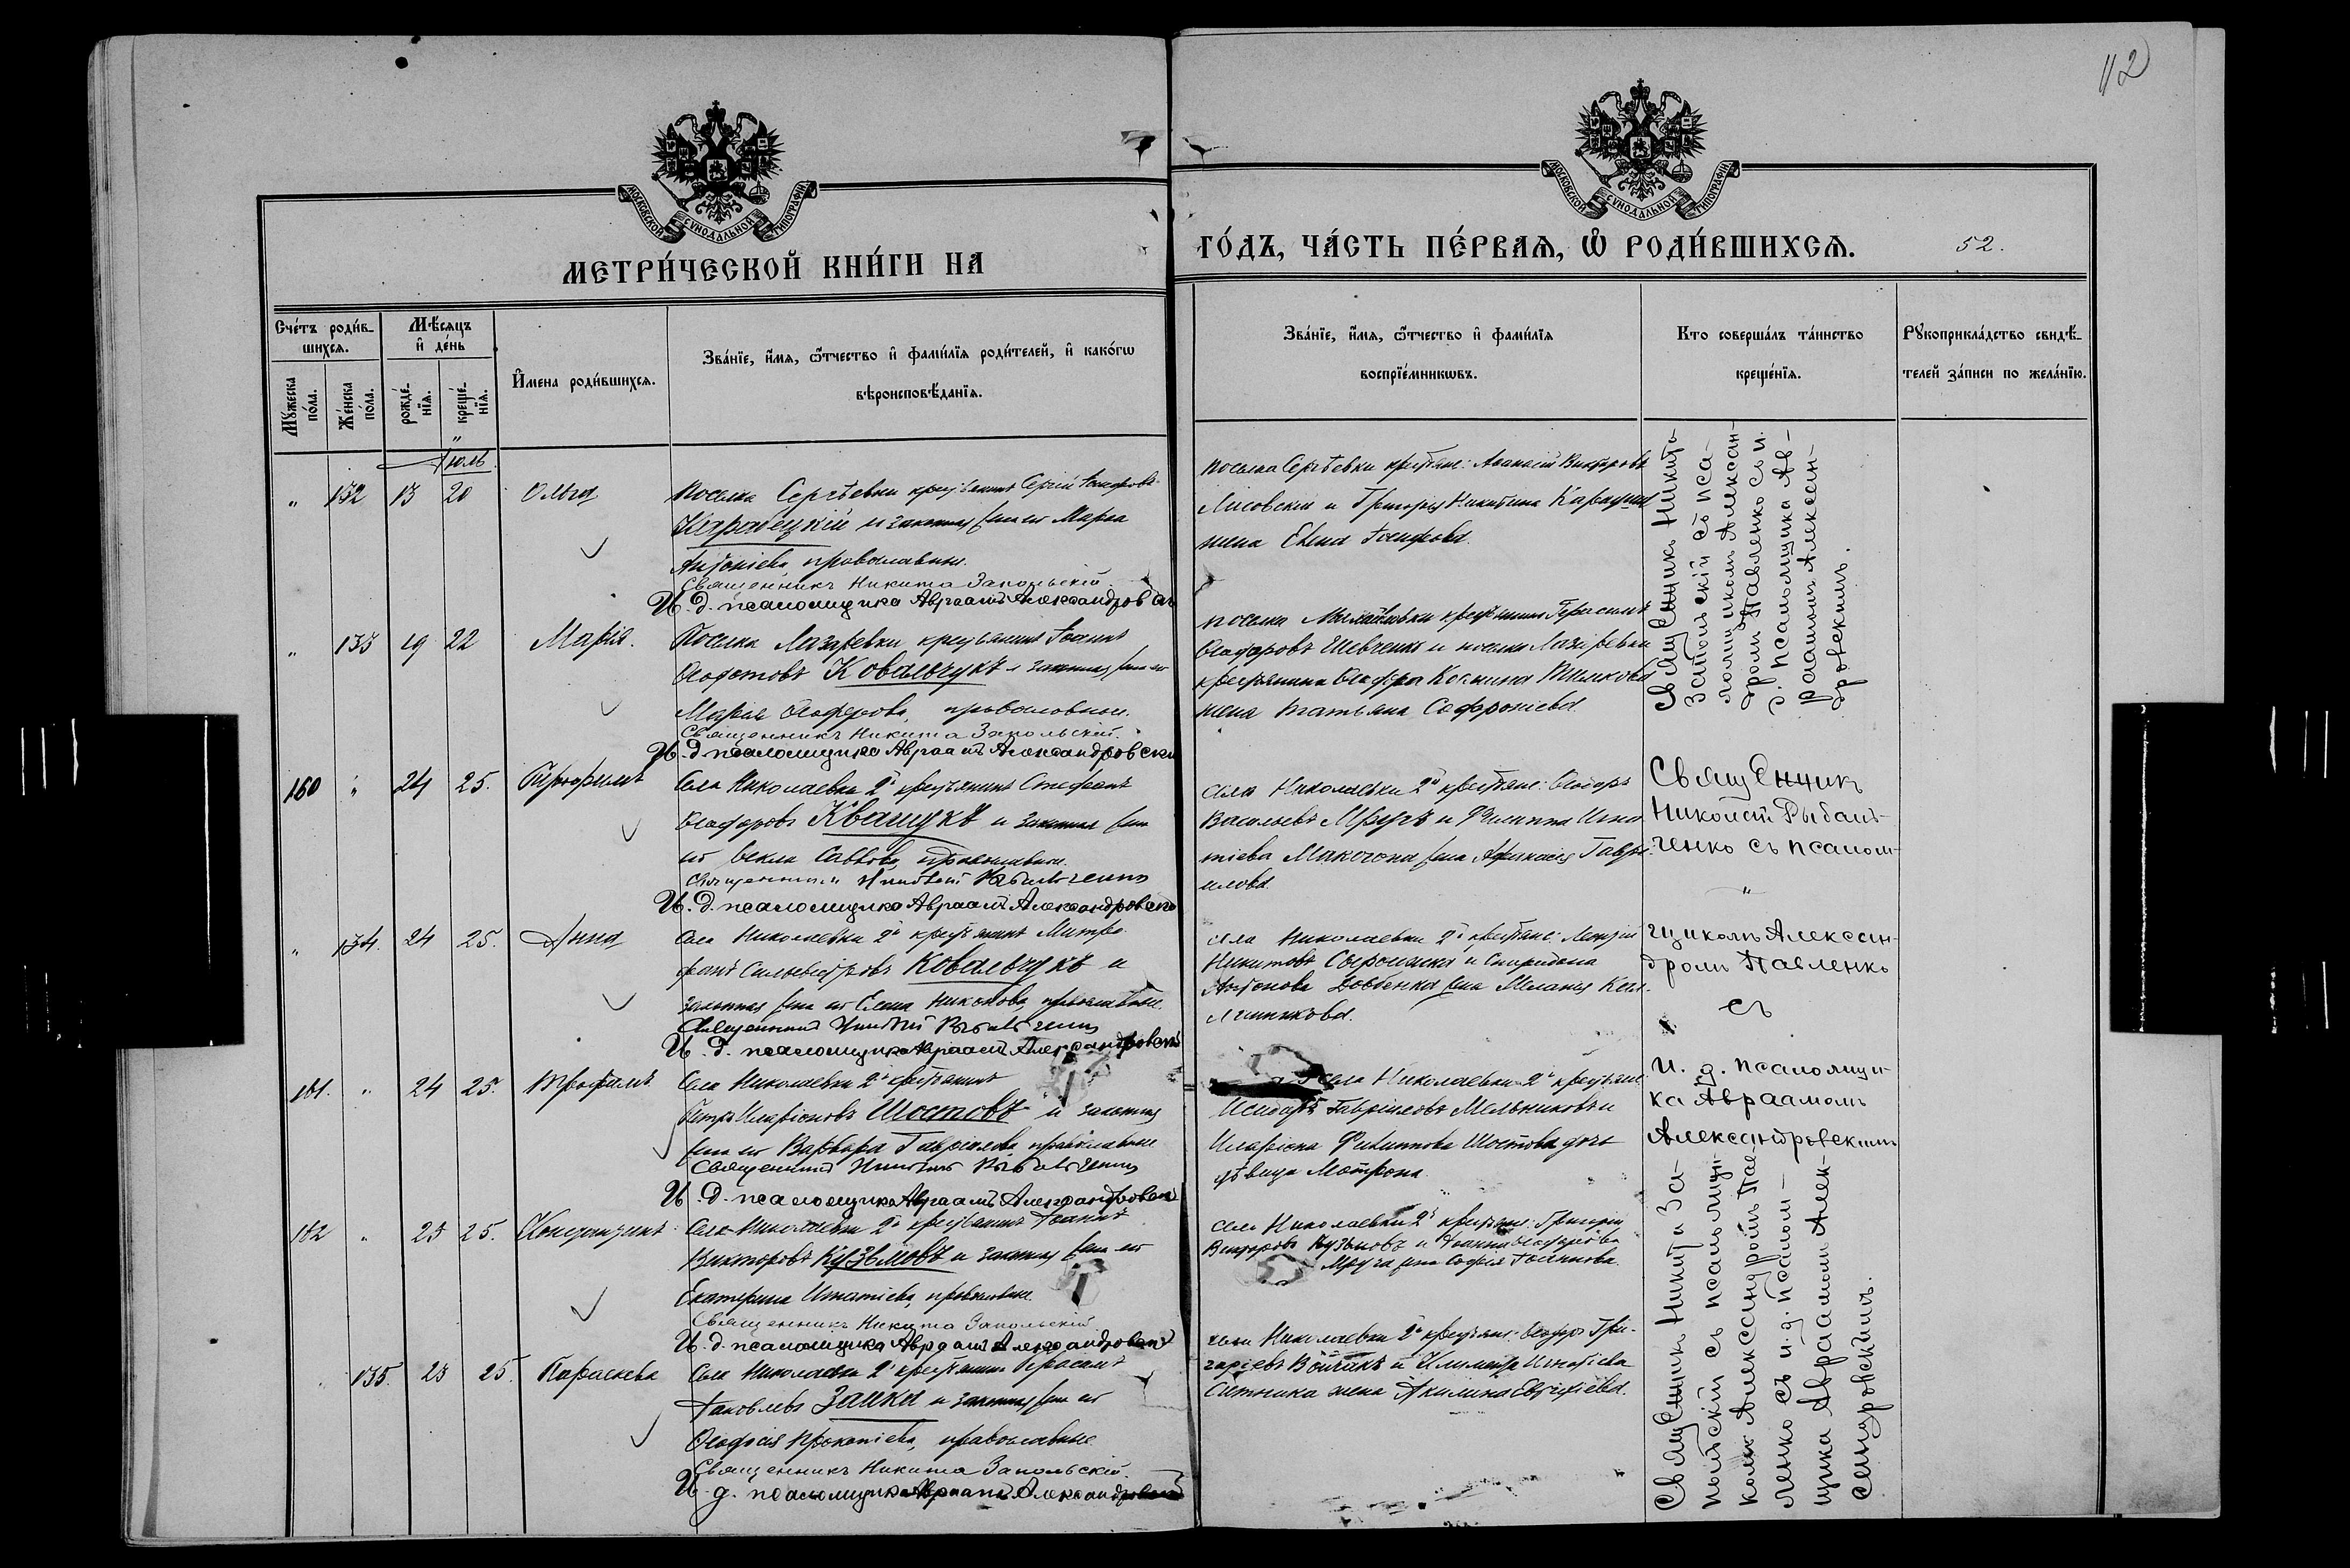 112
МОСКОВСКОЙ СѴНОДАЛЬНОЙ ТИПОГРАФІИ
МОСКОВСКОЙ СѴНОДАЛЬНОЙ ТИПОГРАФІИ
МЕТРИ́ЧЕСКОЙ КНИ́ГИ НА
ГО́ДЪ, ЧА́СТЬ ПЕ́РВАѦ, Ѡ҆ РОДИ́ВШИХСѦ.
52.
Сче́тъ роди́в-
шихсѧ.
Мꙋ́жеска по́ла.
Же́нска по́ла.
Мѣ́сѧцъ и҆ де́нь
рожде́-нїѧ.
креще́-нїѧ.
И҆мена роди́вшихсѧ.
Зва́нїе, и҆́мѧ, ѻ҆́тчество и҆ фамѝлїѧ роди́телей, и҆ како́гѡ
вѣроисповѣ́данїѧ.
Зва́нїе, и҆́мѧ, ѻ҆́тчество и҆ фамѝлїѧ
воспрїе́мникѡвъ.
Кто соверша́лъ та́инство
креще́нїѧ.
Рꙋкоприкла́дство свидѣ́-
телей за́писи по жела́нїю.
Іюль
" 132 13 20 Ольга
Поселка Сергѣевки крестьянинъ Сергій
и законная жена его Марѳа
Антоніева, православные.
Священникъ Никита Запольскій.
И. д. псаломщика Авраамъ Александровскій
поселка Сергѣевки крестьяне: Аѳанасій Викторовъ
Лисовскій и Григорія Никитина
жена Елена
Священникъ Никита
Запольскій съ пса-
ломщикомъ Алексан-
дромъ Павленко съ и.
д. псаломщика Ав-
раамомъ Алексан-
дровскимъ.
" 133 19 22 Марія.
Поселка Лазаревки крестьянинъ Іоаннъ
Ѳеодотовъ Ковальчукъ и законная жена его
Марія Ѳеодорова, православные.
Священникъ Никита Запольскій.
И. д. псаломщика Авраамъ Александровскій
поселка Михайловки крестьянинъ Герасимъ
Ѳеодоровъ Шевченко и поселка Лазаревки
крестьянина Ѳеодора Космина
жена Татьяна Софроніева.
160 " 24 25. Трофимъ
Села Николаевки 2й крестьянинъ Стефанъ
Ѳеодоровъ Квашукъ и законная жена
его Ѳекла Саввова, православные.
Священникъ Рыбальченко
И. д. псаломщика Авраамъ Александровскій
села Николаевки 2й крестьяне: Ѳеодоръ
Васильевъ Мругъ и Филиппа Игна-
тіева Макогона жена Аѳанасія Гаврі-
илова.
Священникъ
Рыбаль-
ченко съ псалом-
" 134. 24 25. Анна
Села Николаевки 2й крестьянинъ Митро-
фанъ Сильвестровъ Ковальчукъ и
законная жена его Елена Никонова, православные.
Священникъ Рыбальченко
И. д. псаломщика Авраамъ Александровскій
села Николаевки 2й крестьяне: Леонтій
Никитовъ и Спиридона
Антонова Довбенка жена Меланія
щикомъ Алексан-
дромъ Павленко
съ
161. " 24 25. Трофимъ
Села Николаевки 2й крестьянинъ
Петръ Иларіоновъ Шостовъ и законная
жена его Варвара Гавріилова, православные
Священникъ Рыбальченко
И. д. псаломщика Авраамъ Александровскій
села Николаевки 2й крестьяне
Исидоръ Гавріиловъ Мельниковъ и
Иларіона Филиппова Шостова дочь
дѣвица Матрона.
и. д. псаломщи-
ка Авраамомъ
Александровскимъ
162 " 23 25. Константинъ
Села Николаевки 2й крестьянинъ Іоаннъ
Викторовъ Кузьмовъ и законная жена его
Екатерина Игнатіева, православные.
Священникъ Никита Запольскій
И. д. псаломщика Авраамъ Александровскій
села Николаевки 2й крестьяне: Григорій
Викторовъ Кузьмовъ и Іоанна Ѳеодорова
Мруга жена Софія Іоаннова.
Священникъ Никита За-
польскій съ псаломщи-
комъ Александромъ Пав-
ленко съ и. д. псалом-
щика Авраамомъ Алек-
сандровскимъ.
135. 23 25. Параскева
Села Николаевки 2й крестьянинъ Герасимъ
Іаковлевъ Заика и законная жена его
Ѳеодосія Прокопіева, православные
Священникъ Никита Запольскій.
И. д. псаломщика Авраамъ Александровскій
села Николаевки 2й крестьяне: Ѳеодоръ Гри-
горіевъ и Климента Игнатіева
Ситника жена Акилина